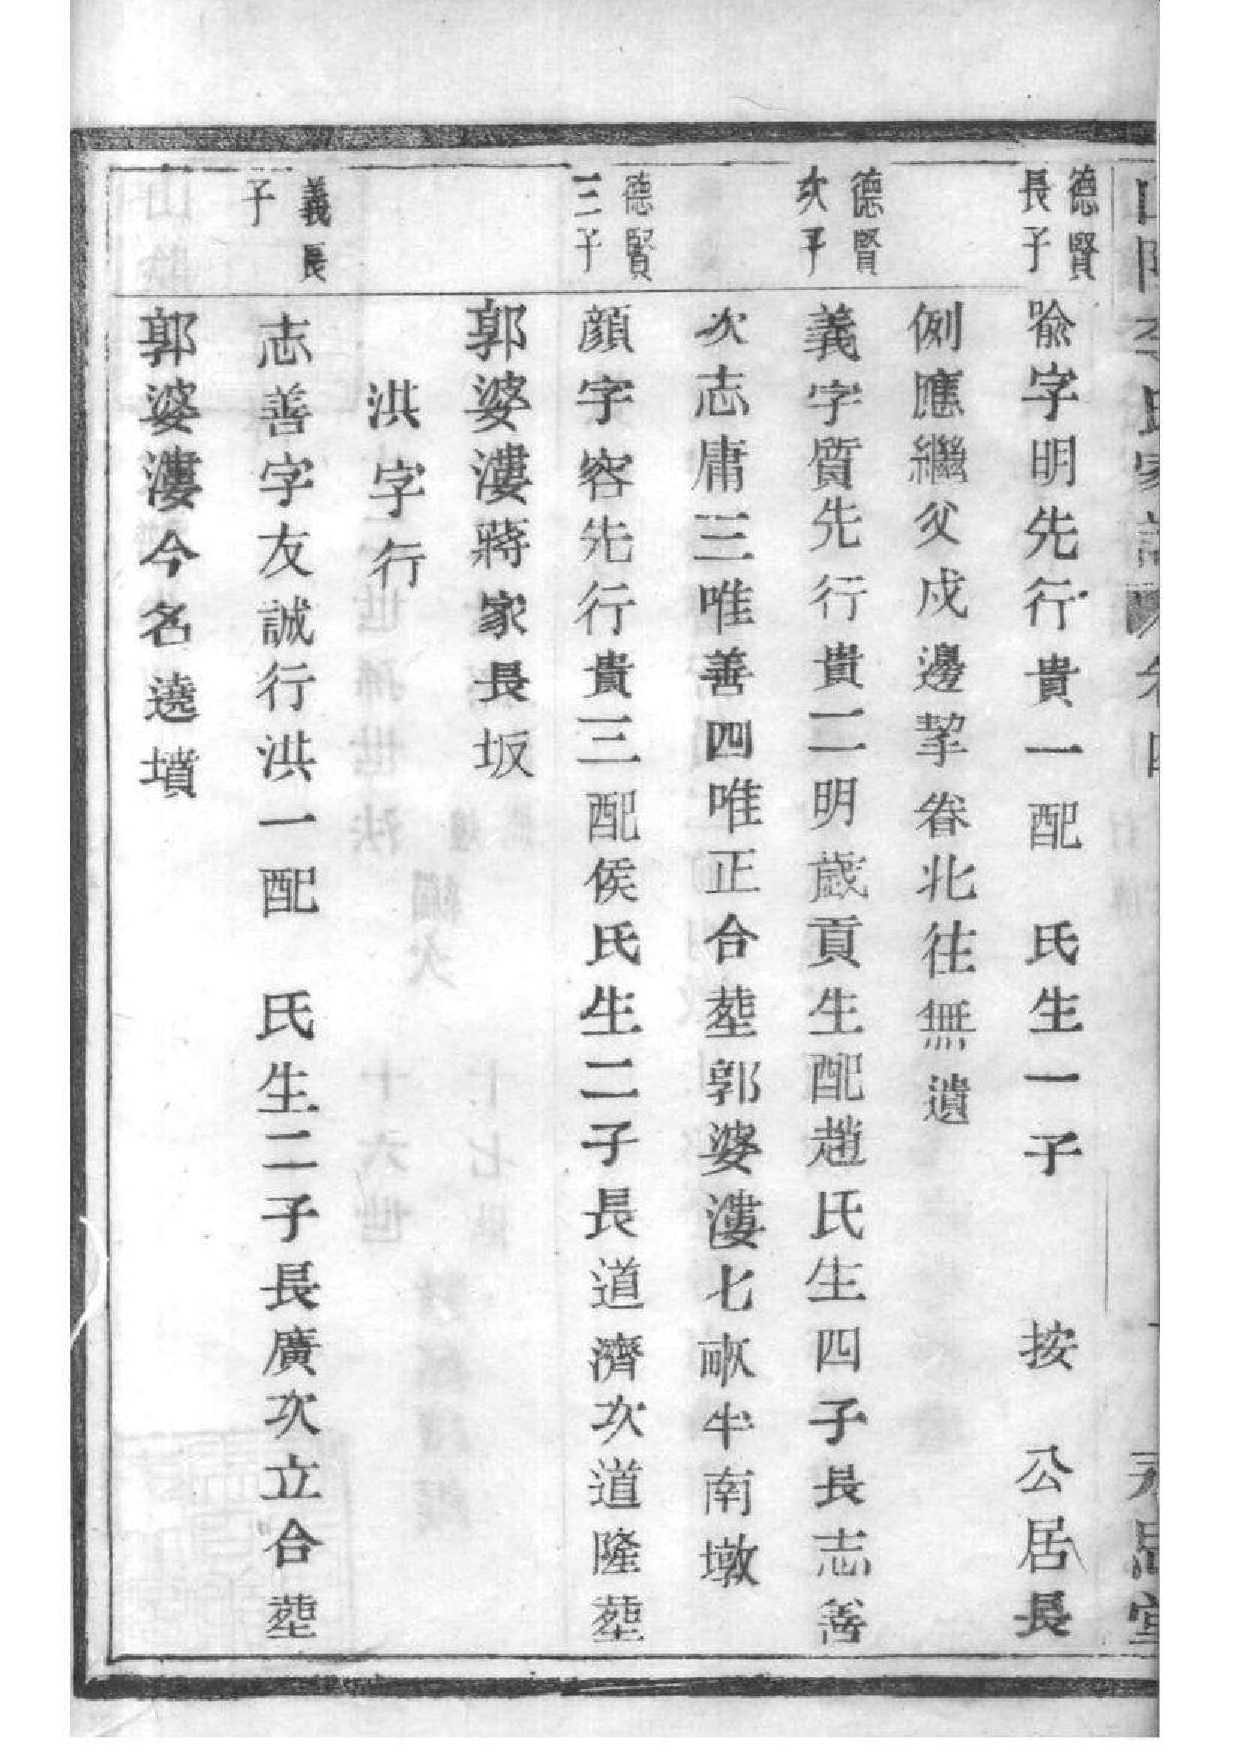 李氏家譜 卷四 永思堂
德賢長子
喩字明先行貴一配 氏生一子 按 公居長
例應繼父戍邊挈眷北往無遺
德賢次子
義字質先行貴二明歲貢生配趙氏生四子長志善
次志庸三唯善四唯正合塟郭婆漊七畝半南墩
德賢三子
顔字容先行貴三配侯氏生二子長道濟次道隆塟
郭婆漊蔣家長坂
洪字行
義長子
志善字友誠行洪一配 氏生二子長廣次立合塟
郭婆漊今名遶墳